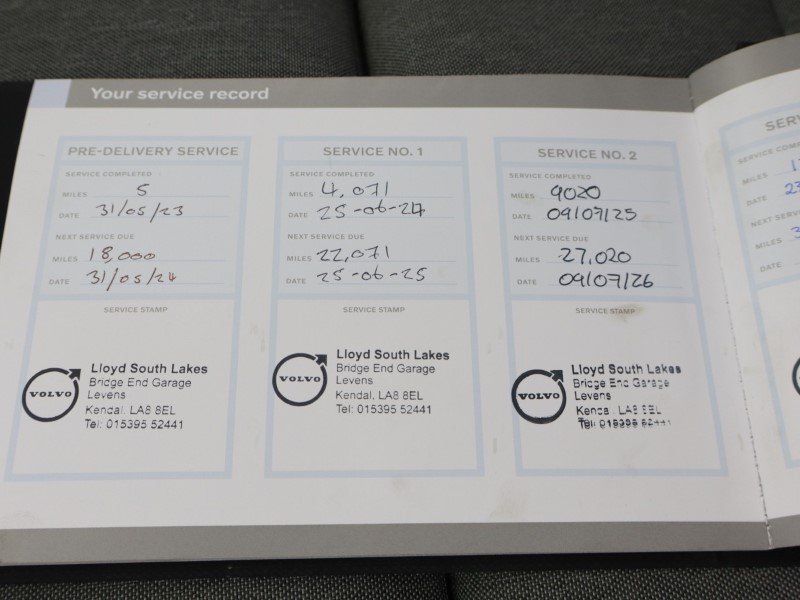 Your service record
PRE-DELIVERY SERVICE
SERVICE COMPLETED
MILES 5
DATE 31/05/23
NEXT SERVICE DUE
MILES 18,000
DATE 31/05/24
SERVICE STAMP
VOLVO
Lloyd South Lakes
Bridge End Garage
Levens
Kendal, LA8 8EL
Tel: 015395 52441
SERVICE NO. 1
SERVICE COMPLETED
MILES 4,071
DATE 25-06-24
NEXT SERVICE DUE
MILES 22,071
DATE 25-06-25
SERVICE STAMP
VOLVO
Lloyd South Lakes
Bridge End Garage
Levens
Kendal, LA8 8EL
Tel: 015395 52441
SERVICE NO. 2
SERVICE COMPLETED
MILES 9020
DATE 09/07/25
NEXT SERVICE DUE
MILES 27,020
DATE 09/07/26
SERVICE STAMP
VOLVO
Lloyd South Lakes
Bridge End Garage
Levens
Kendal, LA8 8EL
Tel: 015395 52441
SERV
SERVICE COM
MILES
DATE
NEXT SERVI
MILES
DATE